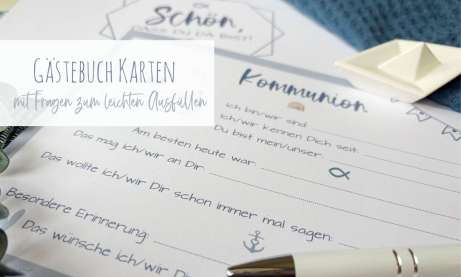 Schön,
DASS DU DA BIST!
GÄSTEBUCH KARTEN
mit Fragen zum leichten Ausfüllen
Kommunion
Ich bin/wir sind
Ich/wir kennen Dich seit:
Du bist mein/unser
Am besten heute war:
Das mag ich/wir an Dir:
Das wollte ich/wir Dir schon immer mal sagen:
Besondere Erinnerung:
Das wünsche ich/wir Dir